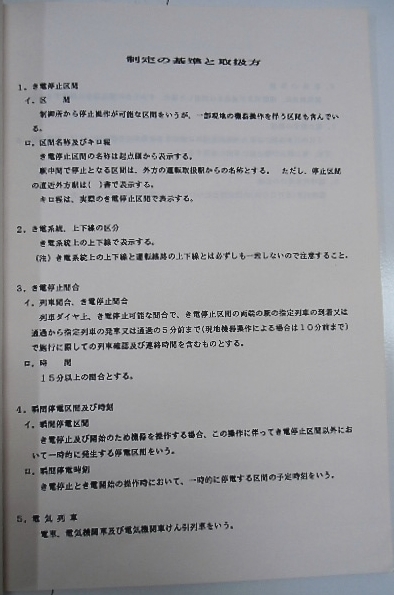 制定の基準と取扱方
1．き電停止区間
イ．区　　間
制御所から停止操作が可能な区間をいうが、一部現地の機器操作を伴う区間も含んでい
る。
ロ．区間名称及びキロ程
き電停止区間の名称は起点側から表示する。
駅中間で停止となる区間は、外方の運転取扱駅からの名称とする。　ただし、停止区間
の直近外方駅は（　）書で表示する。
キロ程は、実際のき電停止区間で表示する。
2．き電系統、上下線の区分
き電系統上の上下線で表示する。
（注）き電系統上の上下線と運転線路の上下線とは必ずしも一致しないので注意すること。
3．き電停止間合
イ．列車間合、き電停止間合
列車ダイヤ上、き電停止可能な間合で、き電停止区間の両端の駅の指定列車の到着又は
通過から指定列車の発車又は通過の5分前まで（現地機器操作による場合は10分前まで）
で施行に際しての列車確認及び連絡時間を含むものとする。
ロ．時　　間
15分以上の間合とする。
4．瞬間停電区間及び時刻
イ．瞬間停電区間
き電停止及び開始のため機器を操作する場合、この操作に伴ってき電停止区間以外にお
いて一時的に発生する停電区間をいう。
ロ．瞬間停電時刻
き電停止とき電開始の操作時において、一時的に停電する区間の予定時刻をいう。
5．電気列車
電車、電気機関車及び電気機関車けん引列車をいう。